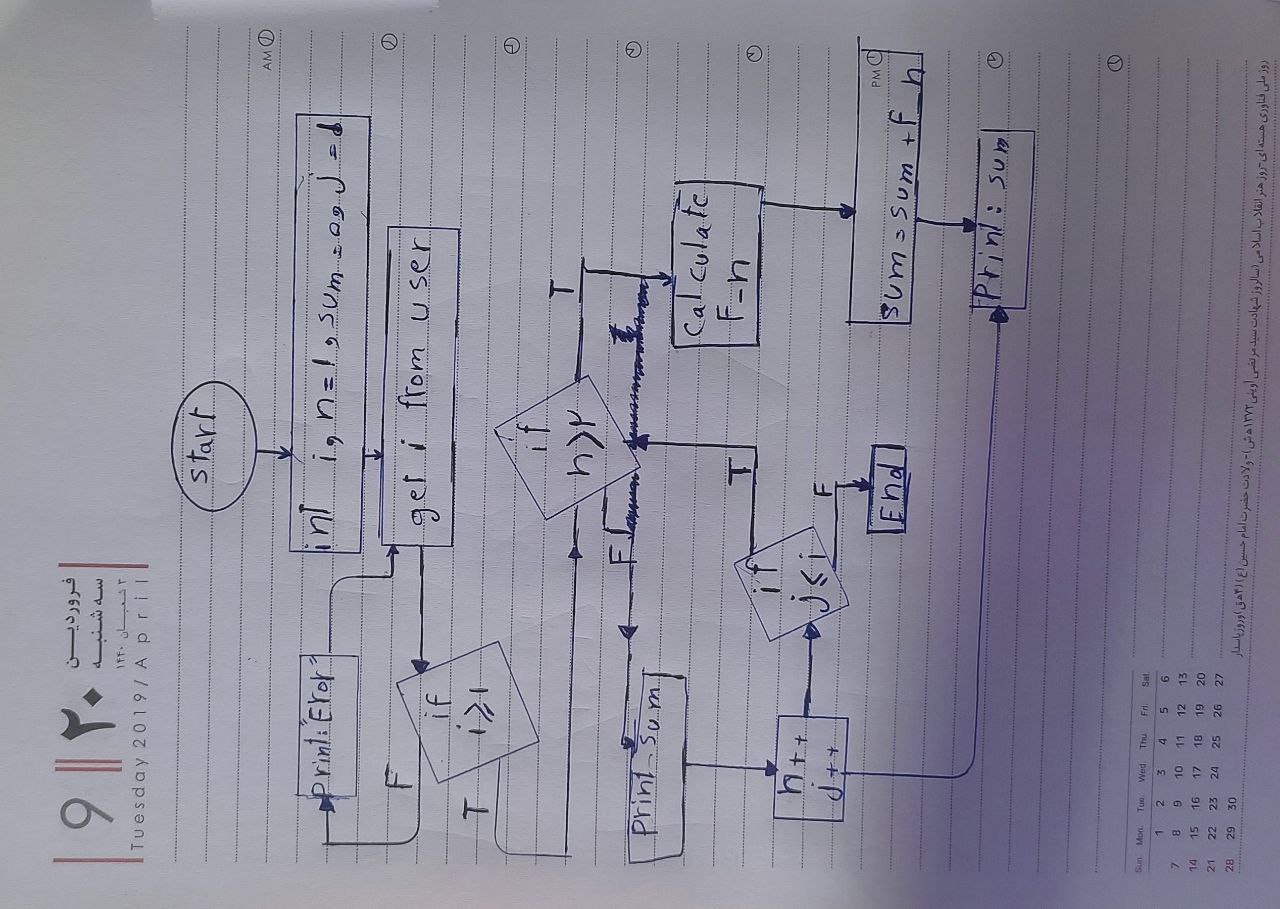 9 ۲۰ فروردین
سه شنبه
۳ شعبان ۱۴۴۰
Tuesday 2019/April
start
AM
int i, n=1, sum=0, j=1
print: "Eror"
get i from user
F
if
i≥1
T
if
n>۲
T
F
Print-sum
Calculate
F-n
T
if
j≤i
n++
j++
F
End
PM
sum=sum+F_n
Print: sum
Sun. Mon. Tue. Wed. Thu. Fri. Sat.
1 2 3 4 5 6
7 8 9 10 11 12 13
14 15 16 17 18 19 20
21 22 23 24 25 26 27
28 29 30
روز ملی فناوری هسته ای-روز هنر انقلاب اسلامی (سالروز شهادت سید مرتضی آوینی ۱۳۷۲ ه ش)-ولادت حضرت امام حسین (ع) (۴ ه ق) و روز پاسدار